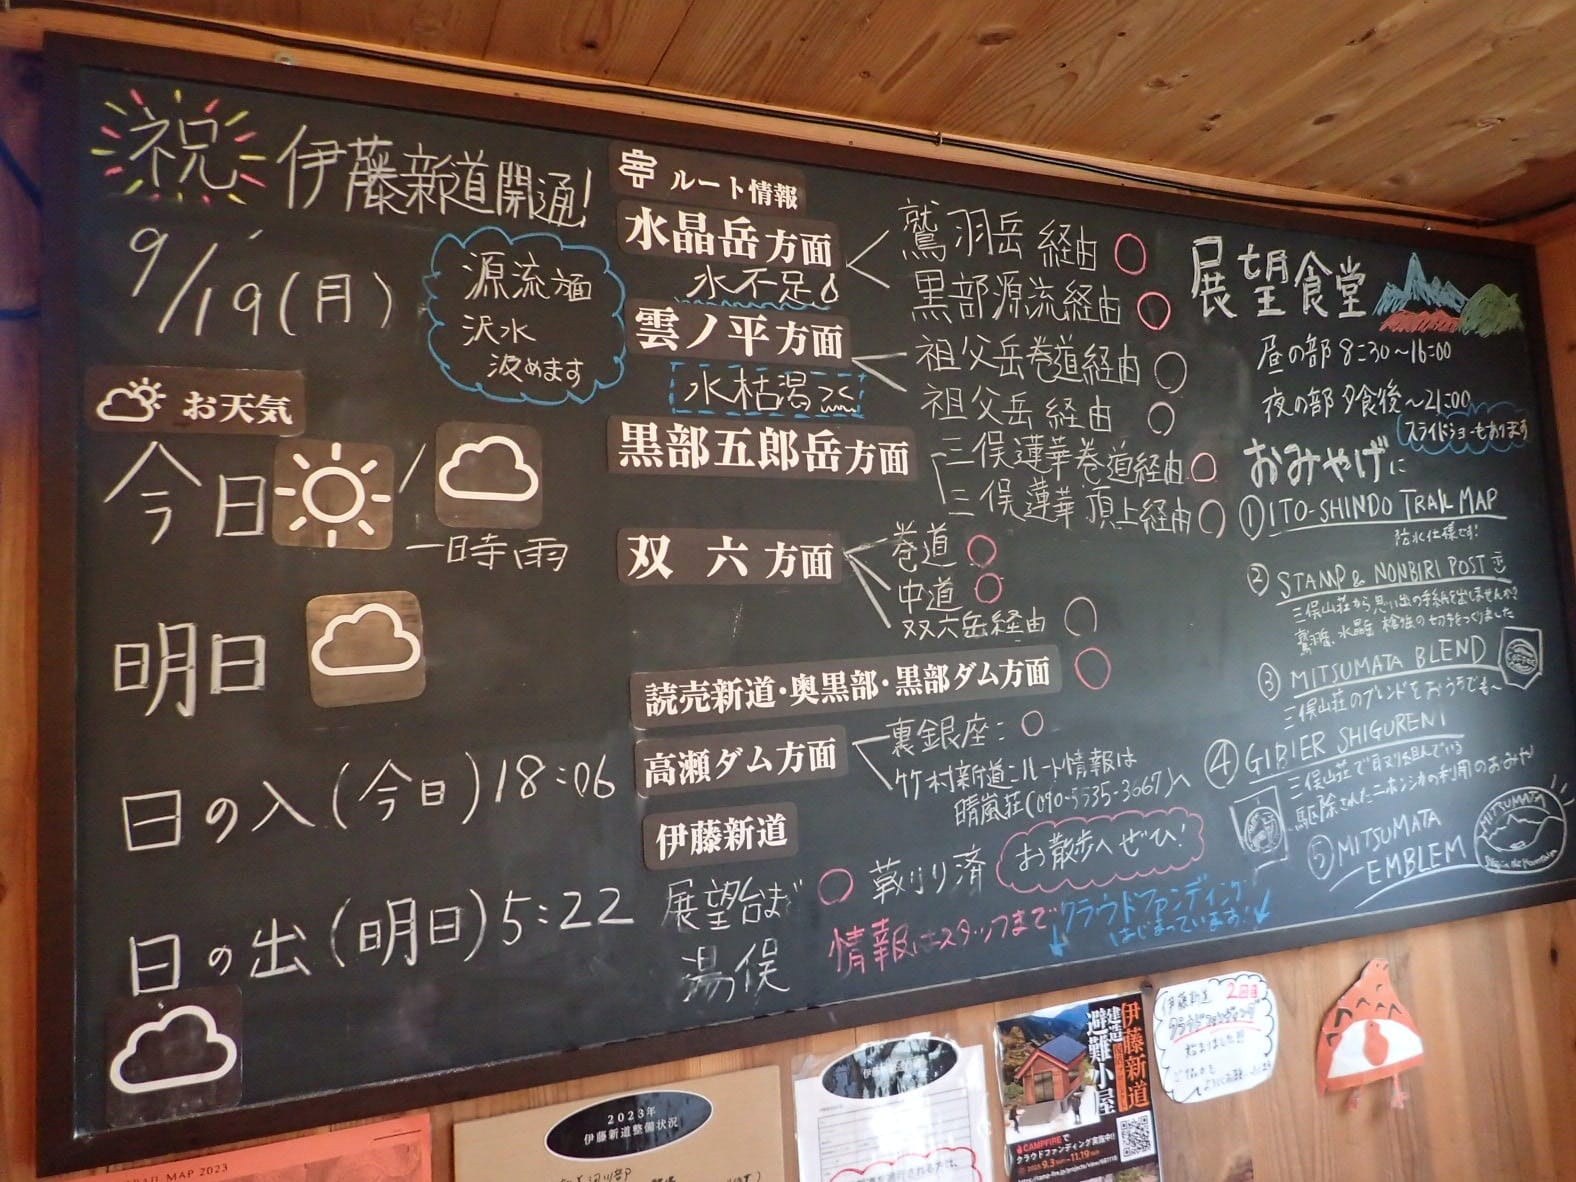 祝 伊藤新道開通!
9/19(月)
源流方面
沢水
汲めます
お天気
今日 / 一時雨
明日
日の入(今日)18:06
日の出(明日)5:22
ルート情報
水晶岳方面
水不足
鷲羽岳経由 ○
黒部源流経由 ○
雲ノ平方面
水枯渇
祖父岳巻道経由 ○
祖父岳経由 ○
黒部五郎岳方面
三俣蓮華巻道経由 ○
三俣蓮華頂上経由 ○
双六方面
巻道 ○
中道 ○
双六岳経由 ○
読売新道・奥黒部・黒部ダム方面 ○
高瀬ダム方面
裏銀座: ○
竹村新道:ルート情報は
晴嵐荘(090-5535-3667)へ
伊藤新道
展望台まで ○ 草刈り済
お散歩へぜひ!
湯俣
情報はスタッフまで
クラウドファンディング
はじまっています!
展望食堂
昼の部 8:30~16:00
夜の部 夕食後~21:00
スライドショーもあります
おみやげに
① ITO-SHINDO TRAIL MAP
防水仕様です!
② STAMP & NONBIRI POST
三俣山荘から思い出の手紙を出しませんか?
③ MITSUMATA BLEND
三俣山荘のブレンドをおうちでも~
④ GIBIER SHIGURENI
三俣山荘で取り組んでいる
駆除されたニホンジカの利用のおみや
⑤ MITSUMATA
EMBLEM
MITSUMATA
MAP 2023
2023年
伊藤新道整備状況
伊藤新道
建造
避難小屋
CAMPFIREで
クラウドファンディング実施中!!
9.3 11.19
伊藤新道 2回目
クラウドファンディング
始まりました!!